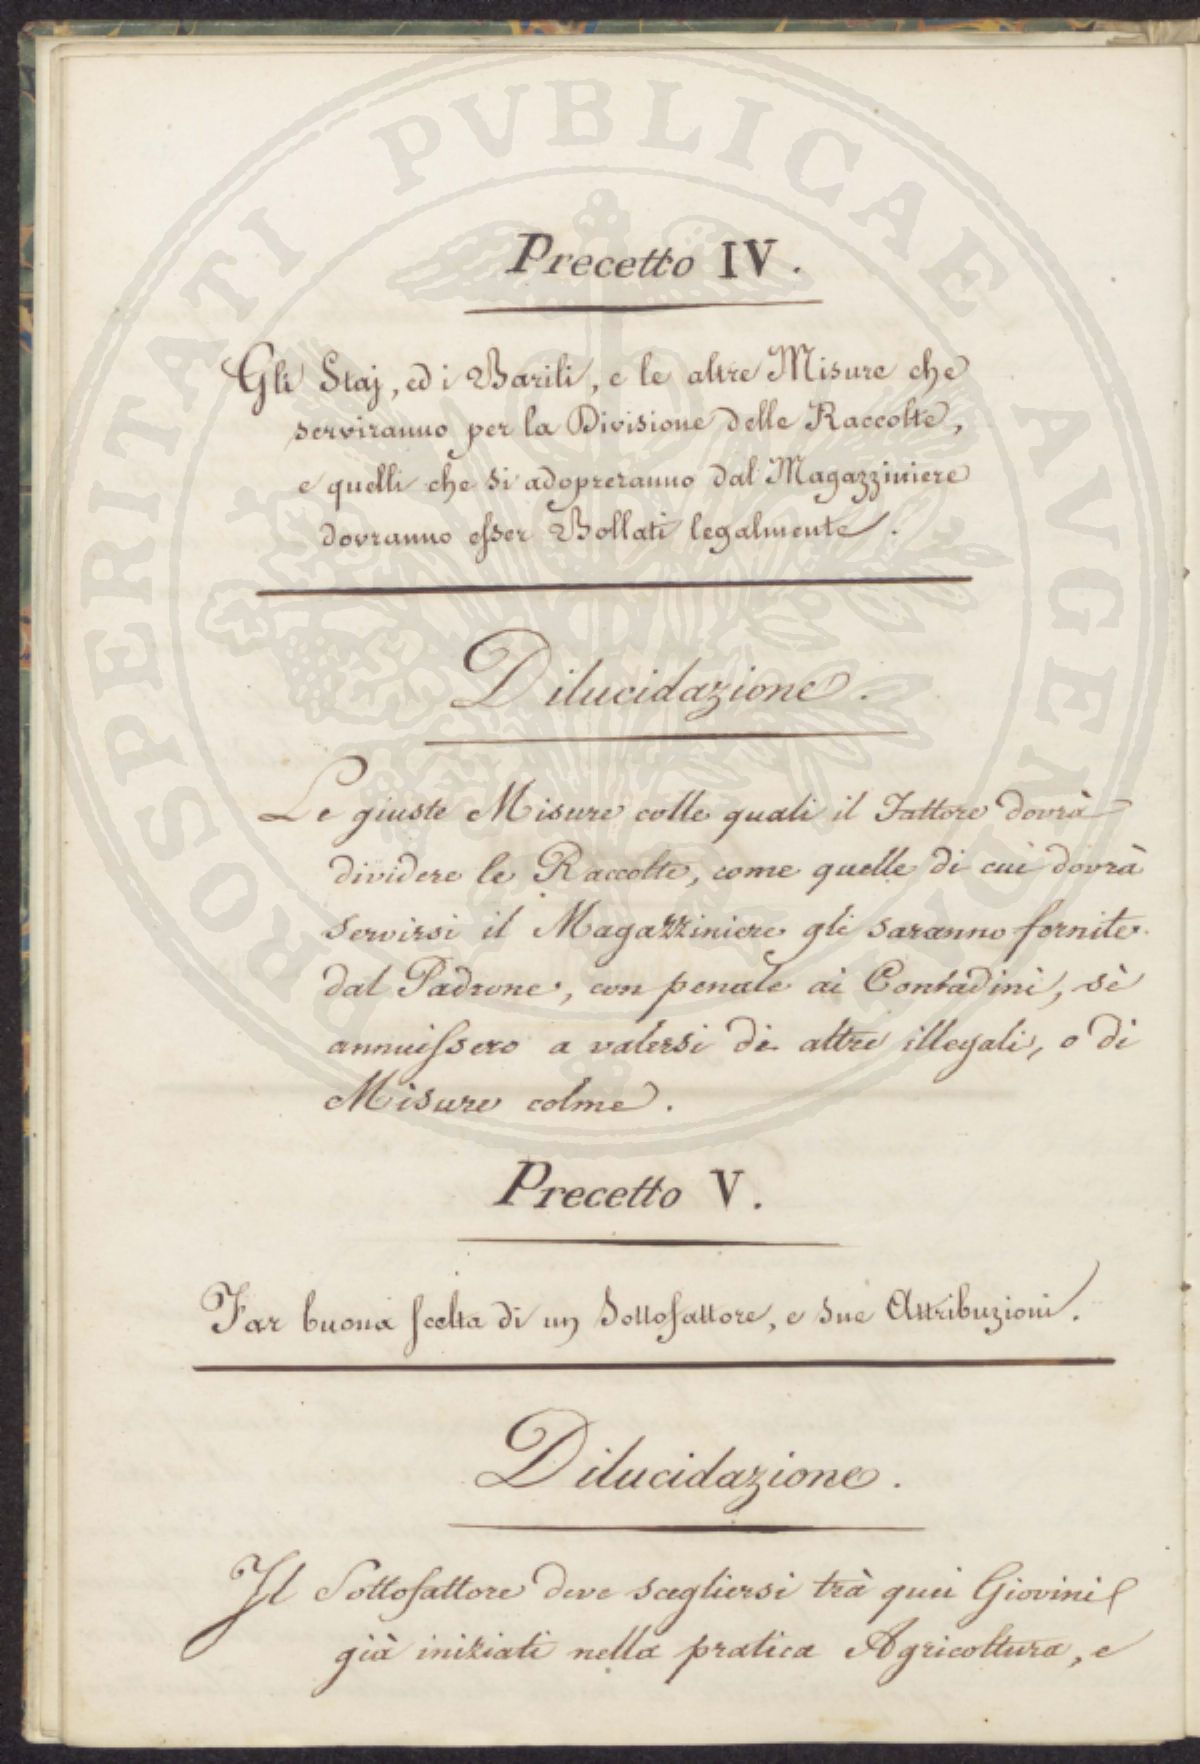 Precetto IV.
Gli Staj, ed i Barili, e le altre Misure che
serviranno per la Divisione delle Raccolte,
e quelli che si adopreranno dal Magazziniere
dovranno esser Bollati legalmente.
Dilucidazione.
Le giuste Misure colle quali il Fattore dovrà
dividere le Raccolte, come quelle di cui dovrà
servirsi il Magazziniere gli saranno fornite
dal Padrone, con penale ai Contadini, sè
annuissero a valersi di altre illegali, o di
Misure colme.
Precetto V.
Far buona scelta di un Sottofattore, e sue Attribuzioni.
Dilucidazione.
Il Sottofattore deve scegliersi trà quei Giovini
già iniziati nella pratica Agricoltura, e
PROSPERITATI PVBLICAE AVGENDAE